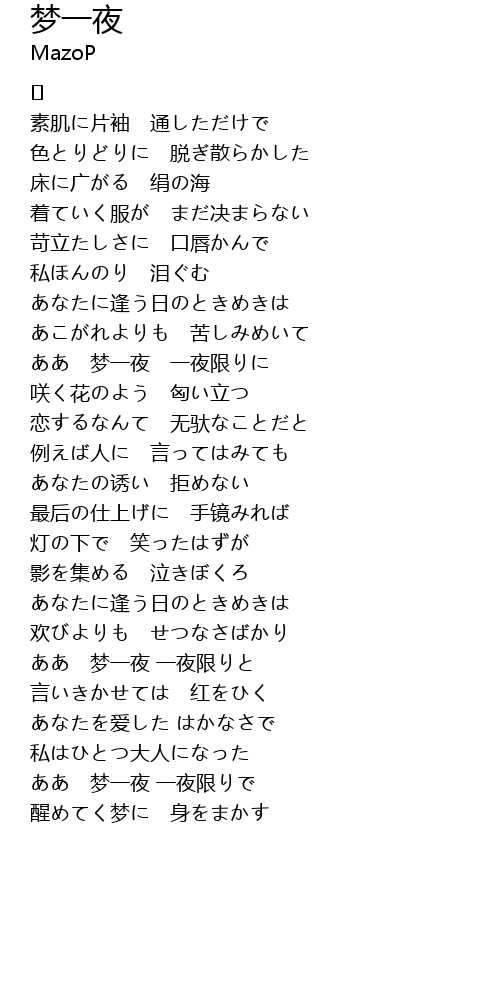 梦一夜
MazoP
[]
素肌に片袖　通しただけで
色とりどりに　脱ぎ散らかした
床に广がる　绢の海
着ていく服が　まだ决まらない
苛立たしさに　口唇かんで
私ほんのり　泪ぐむ
あなたに逢う日のときめきは
あこがれよりも　苦しみめいて
ああ　梦一夜　一夜限りに
咲く花のよう　匂い立つ
恋するなんて　无驮なことだと
例えば人に　言ってはみても
あなたの诱い　拒めない
最后の仕上げに　手镜みれば
灯の下で　笑ったはずが
影を集める　泣きぼくろ
あなたに逢う日のときめきは
欢びよりも　せつなさばかり
ああ　梦一夜 一夜限りと
言いきかせては　红をひく
あなたを爱した はかなさで
私はひとつ大人になった
ああ　梦一夜 一夜限りで
醒めてく梦に　身をまかす